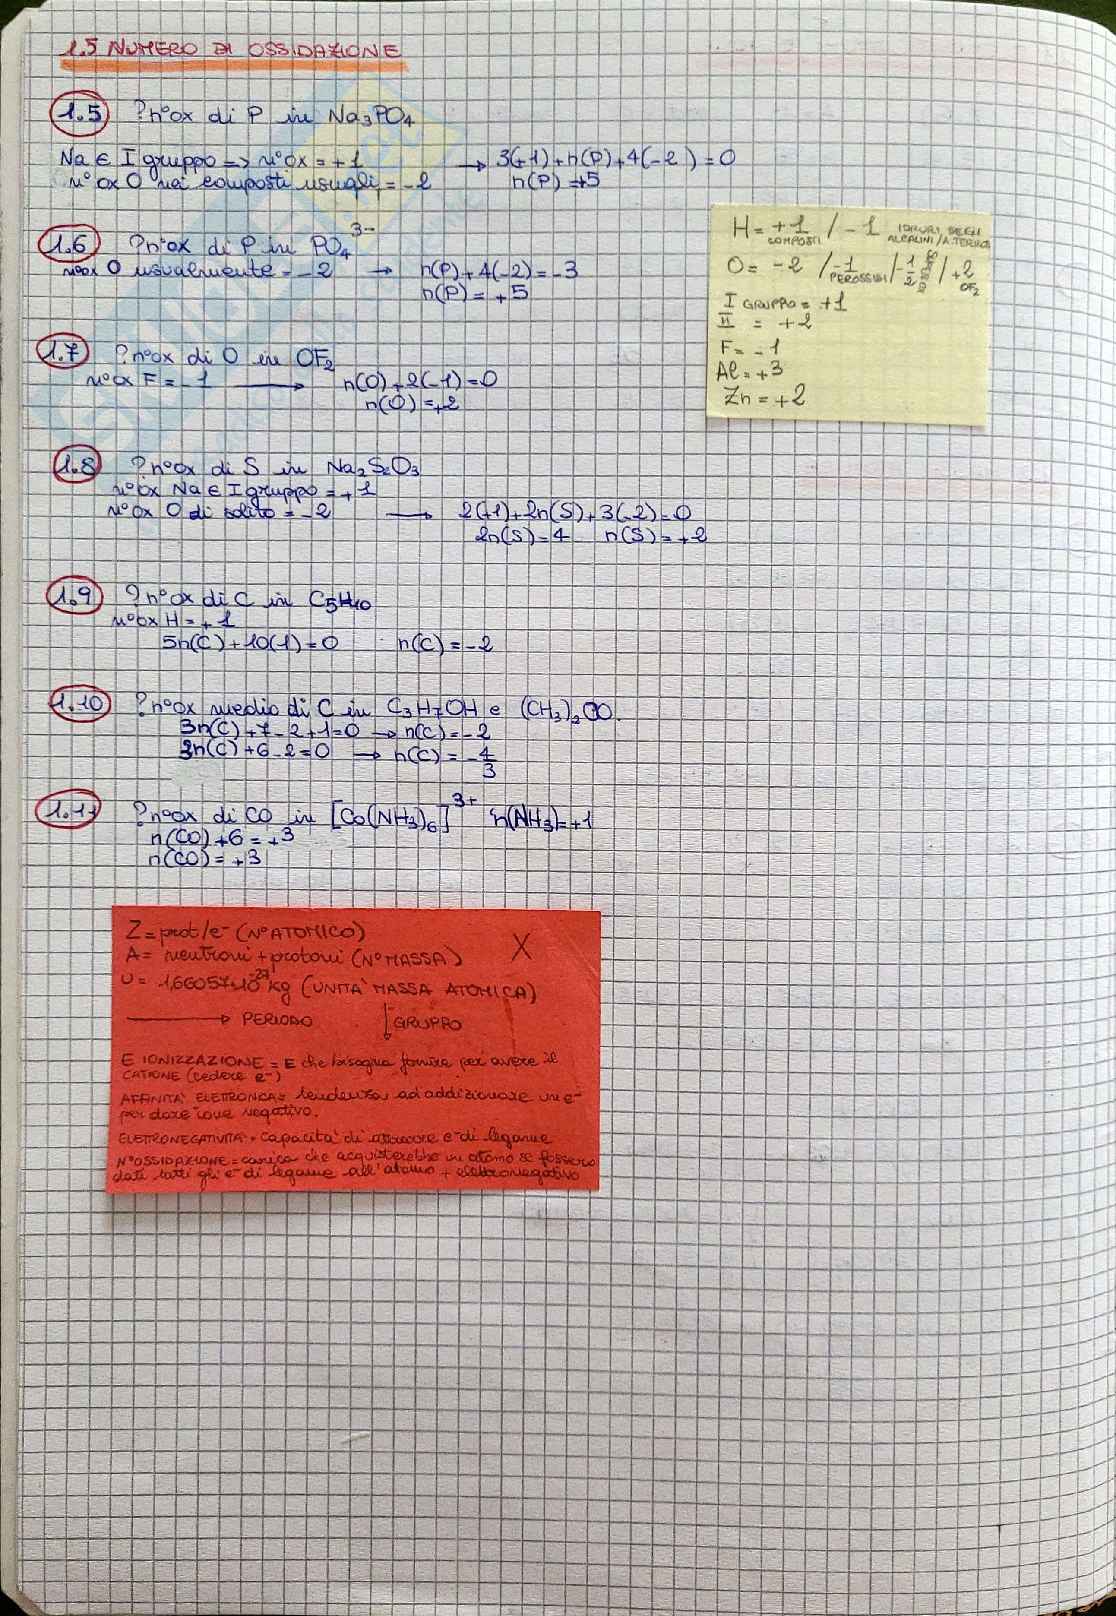 1.5 NUMERO DI OSSIDAZIONE
1.5 ?n°ox di P in Na3PO4
Na ∈ I gruppo => n°ox = +1 → 3(+1)+n(P)+4(-2) = 0
n°ox O nei composti usuali = -2 n(P) = +5
1.6 ?n°ox di P in PO4 3-
n°ox O usualmente = -2 → n(P)+4(-2) = -3
n(P) = +5
H = +1 / -1 IDRURI DEGLI
COMPOSTI ALCALINI/A.TERROSI
O = -2 / -1 / -1/2 / +2
PEROSSIDI OF2
I GRUPPO = +1
II = +2
F = -1
Al = +3
Zn = +2
1.7 ?n°ox di O in OF2
n°ox F = -1 → n(O)+2(-1) = 0
n(O) = +2
1.8 ?n°ox di S in Na2S2O3
n°ox Na ∈ I gruppo = +1
n°ox O di solito = -2 → 2(+1)+2n(S)+3(-2) = 0
2n(S) = 4 n(S) = +2
1.9 ?n°ox di C in C5H10
n°ox H = +1
5n(C)+10(1) = 0 n(C) = -2
1.10 ?n°ox medio di C in C3H7OH e (CH3)2CO.
3n(C)+7-2+1=0 → n(C) = -2
3n(C)+6-2=0 → n(C) = -4/3
1.11 ?n°ox di CO in [Co(NH3)6]3+ n(NH3)=+1
n(CO)+6 = +3
n(CO) = +3
Z = prot/e- (N° ATOMICO)
A = neutroni + protoni (N° MASSA) X
U = 1,66057·10-27 kg (UNITA' MASSA ATOMICA)
→ PERIODO ↓ GRUPPO
E IONIZZAZIONE = E che bisogna fornire per avere il
CATIONE (cedere e-)
AFFINITA' ELETTRONICA = tendenza ad addizionare un e-
per dare ione negativo.
ELETTRONEGATIVITA' = capacita' di attrarre e- di legame
N° OSSIDAZIONE = carica che acquisterebbe un atomo se fossero
dati tutti gli e- di legame all'atomo + elettronegativo